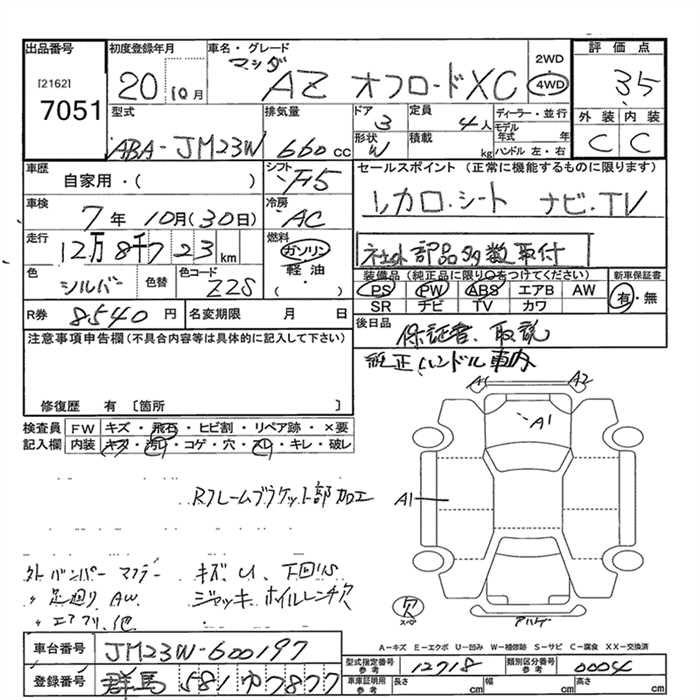 出品番号 初度登録年月 車名・グレード 2WD 評価点
[2162] 20 10月 マツダ AZ オフロードXC 4WD 35
7051
型式 排気量 ドア 定員 ディーラー・並行 外装 内装
ABA-JM23W 660cc 3 4人 モデル年式 年 C C
形状 W 積載 kg ハンドル 左・右
車歴 シフト セールスポイント (正常に機能するものに限ります)
自家用・( ) F5 レカロ・シート ナビ・TV
車検 冷房
7年 10月(30日) AC
走行 燃料
12万8千723km ガソリン 社外部品多数取付
軽油・ 装備品(純正品に限り○をつけてください) 新車保証書
色 色替 色コード ( ) PS PW ABS エアB AW 有・無
シルバー Z2S SR ナビ TV カワ
R券 8540円 名変期限 月 日 後日品
保証書、取説
注意事項申告欄(不具合内容等は具体的に記入して下さい)
純正ハンドル車内
修復歴 有 [箇所 ]
検査員 FW キズ・飛石・ヒビ割・リペア跡・×要
記入欄 内装 キズ・汚レ・コゲ・穴・スレ・キレ・破レ
A1 A2
A1
Rフレームブラケット部加工
A1
外バンパー マフラー キズ U、下回りS
〃足廻り AW ジャッキ、ホイルレンチ欠
〃エアクリ、他
欠
スペア アハゲ
A-キズ E-エクボ U-凹み W-補修跡 S-サビ C-腐食 XX-交換済
車台番号 JM23W-600197
型式指定番号 参考 12718 類別区分番号 参考 0004
登録番号 群馬 581 ゆ 7877
車庫証明用 参考 長さ cm 幅 cm 高さ cm